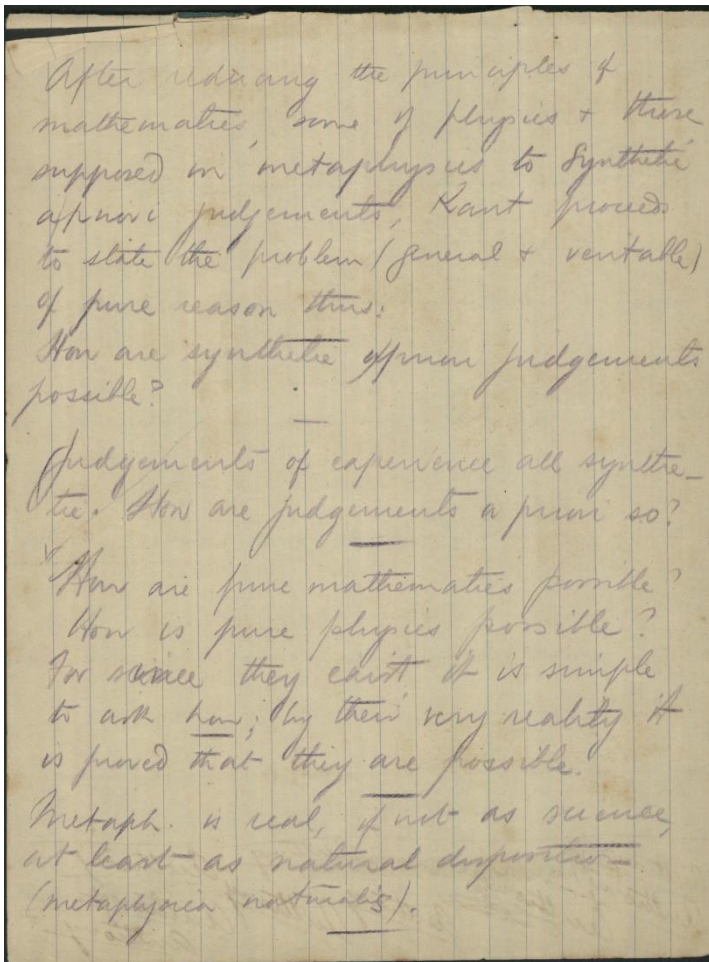 After reducing the principles of
mathematics, some of physics + those
supposed in metaphysics to Synthetic
apriori judgements, Kant proceeds
to state the problem (general + veritable)
of pure reason thus:
How are synthetic apriori judgements
possible?
Judgements of experience all synthe-
tic. How are judgements a priori so?
"How are pure mathematics possible?
How is pure physics possible?
For since they exist it is simple
to ask how; by their very reality it
is proved that they are possible.
Metaph. is real, if not as science,
at least as natural disposition
(metaphysica naturalis).